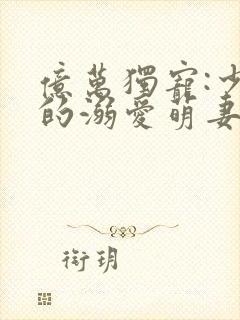 億萬獨寵:少
的溺愛萌妻
衔玥